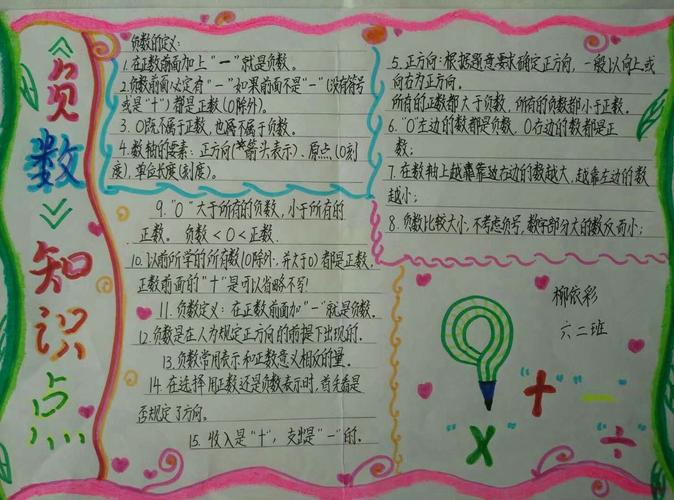 《负数》知识点
负数的定义:
1.在正数前面加上"一"就是负数。
2.负数前面必定有"-"如果前面不是"-"(没有符号
或是"十")都是正数(0除外)。
3.0既不属于正数,也不属于负数。
4.数轴的要素:正方向(箭头表示)、原点(0刻
度),单位长度(刻度)。
5.正方向:根据题意要求确定正方向,一般以向上或
向右为正方向。
所有的正数都大于负数,所有的负数都小于正数。
6."0"左边的数都是负数,0右边的数都是正
数;
7.在数轴上越靠右边的数越大,越靠左边的数
越小;
8.负数比较大小,不考虑负号,数字部分大的数反而小;
9."0"大于所有的负数,小于所有的
正数。 负数<0<正数.
10.以前所学的所有数(0除外,并大于0)都是正数,
正数前面的"十"是可以省略不写!
11.负数定义:在正数前面加"一"就是负数。
12.负数是在人为规定正方向的前提下出现的。
13.负数常用表示和正数意义相反的量。
14.在选择用正数还是负数表示时,首先看是
否规定了方向。
15.收入是"十",支出是"一"的.
柳依彩
六二班
+ −
× ÷